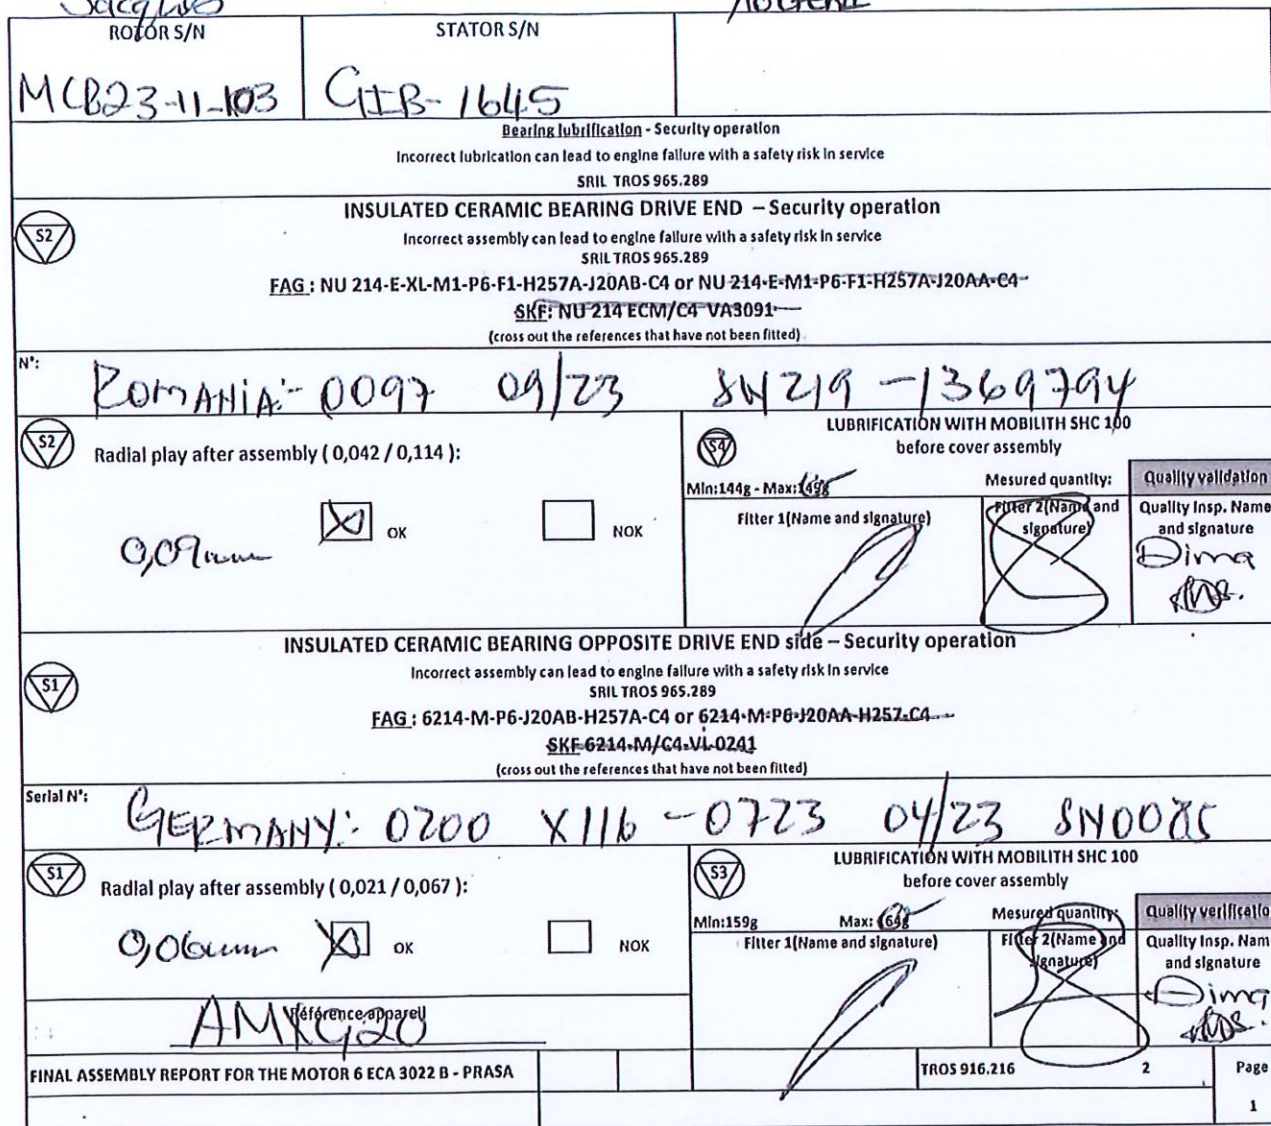 Jacques
ROTOR S/N
STATOR S/N
MCB23-11-103
GIB-1645
Bearing lubrification - Security operation
Incorrect lubrication can lead to engine failure with a safety risk in service
SRIL TROS 965.289
S2
INSULATED CERAMIC BEARING DRIVE END – Security operation
Incorrect assembly can lead to engine failure with a safety risk in service
SRIL TROS 965.289
FAG : NU 214-E-XL-M1-P6-F1-H257A-J20AB-C4 or NU 214-E-M1-P6-F1-H257A-J20AA-C4
SKF: NU 214 ECM/C4 VA3091
(cross out the references that have not been fitted)
N°:
ROMANIA:- 0097 09/23 SN219 -1369794
S2
Radial play after assembly ( 0,042 / 0,114 ):
OK
NOK
0,09mm
S4
LUBRIFICATION WITH MOBILITH SHC 100
before cover assembly
Min:144g - Max:149g
Mesured quantity:
Quality validation
Fitter 1(Name and signature)
Fitter 2(Name and signature)
Quality Insp. Name and signature
Dima
INSULATED CERAMIC BEARING OPPOSITE DRIVE END side – Security operation
S1
Incorrect assembly can lead to engine failure with a safety risk in service
SRIL TROS 965.289
FAG : 6214-M-P6-J20AB-H257A-C4 or 6214-M-P6-J20AA-H257-C4
SKF 6214-M/C4-VL-0241
(cross out the references that have not been fitted)
Serial N°:
GERMANY: 0200 X116 -0723 04/23 SN0085
S1
Radial play after assembly ( 0,021 / 0,067 ):
0,06mm
OK
NOK
S3
LUBRIFICATION WITH MOBILITH SHC 100
before cover assembly
Min:159g
Max: 164g
Mesured quantity:
Quality verificatio
Fitter 1(Name and signature)
Fitter 2(Name and signature)
Quality Insp. Nam
and signature
Dima
Référence appareil
AMXG20
FINAL ASSEMBLY REPORT FOR THE MOTOR 6 ECA 3022 B - PRASA
TROS 916.216
2
Page
1